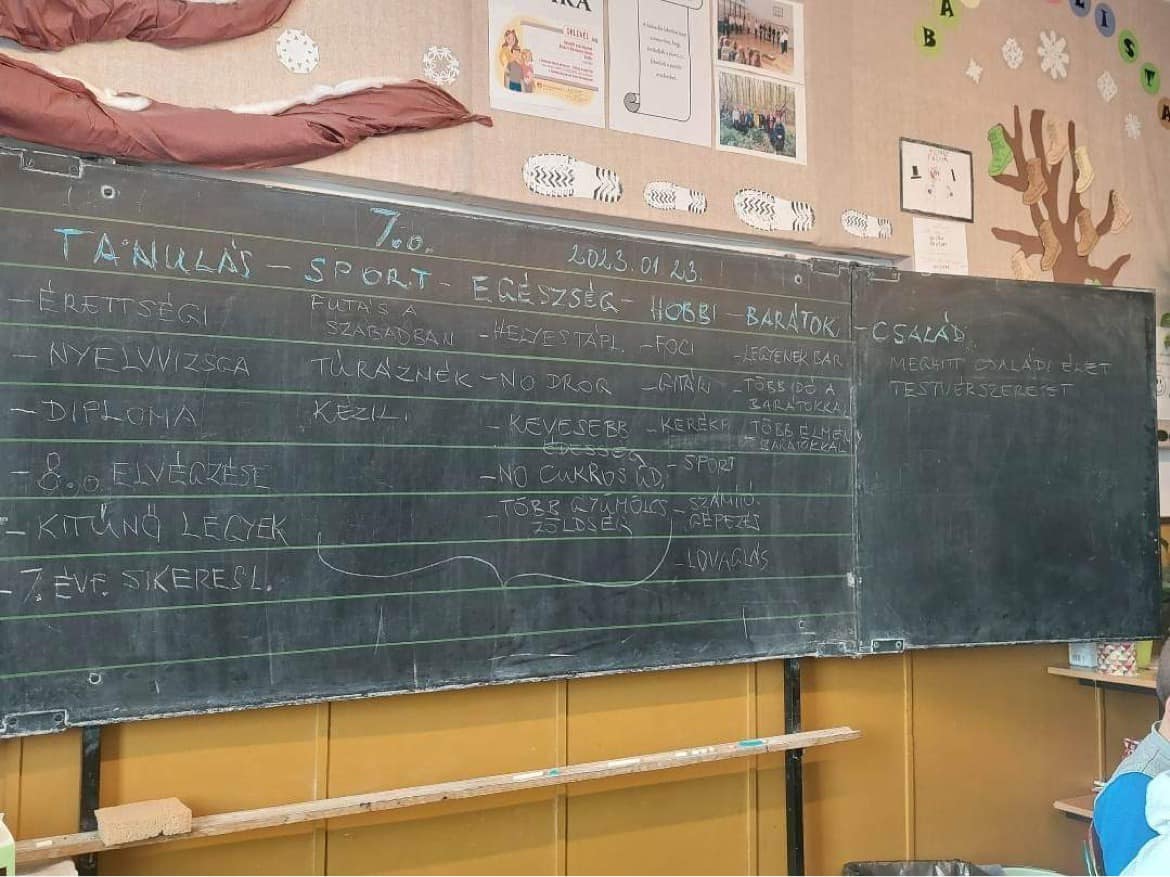 7.o.
2023.01.23.
TANULÁS - SPORT - EGÉSZSÉG - HOBBI - BARÁTOK - CSALÁD
- ÉRETTSÉGI
- NYELVVIZSGA
- DIPLOMA
- 8.o. ELVÉGZÉSE
- KITŰNŐ LEGYEK
- 7. ÉVF. SIKERES L.
FUTÁS A
SZABADBAN
TÚRÁZNÉK
KÉZIL.
- HELYES TÁPL.
- NO DROG
- KEVESEBB
ÉDESSÉG
- NO CUKROS ÜD.
- TÖBB GYÜMÖLCS
ZÖLDSÉG
- FOCI
- GITÁR
- KERÉKP
- SPORT
- SZÁMÍTÓ-
GÉPEZÉS
- LOVAGLÁS
- LEGYENEK BAR
- TÖBB IDŐ A
BARÁTOKKAL
- TÖBB ÉLMÉN
BARÁTOKKAL
MEGHITT CSALÁDI ÉLET
TESTVÉRSZERETET